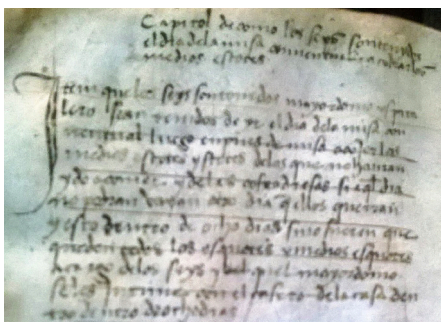 Capitol de como los seys son tenydos
el dia de la misa conventual a cobrar los
medios escotes
Item que los seys son tenidos mayordomo y
lero sean tenidos de yr el dia de la misa con
ventual luego empues de misa a cojer los
medios escotes y scotes de las que no hauran
ydo a comer y de las cofadresas si aql dia
no podran vayan otro dia qllos querran
y esto dentro de ocho dias sino fizieren que
queden todos los esquotes y medios esquotes
a cargo de los seys y del qual mayordomo
se les intime con el de la casa den
tro de ocho dias